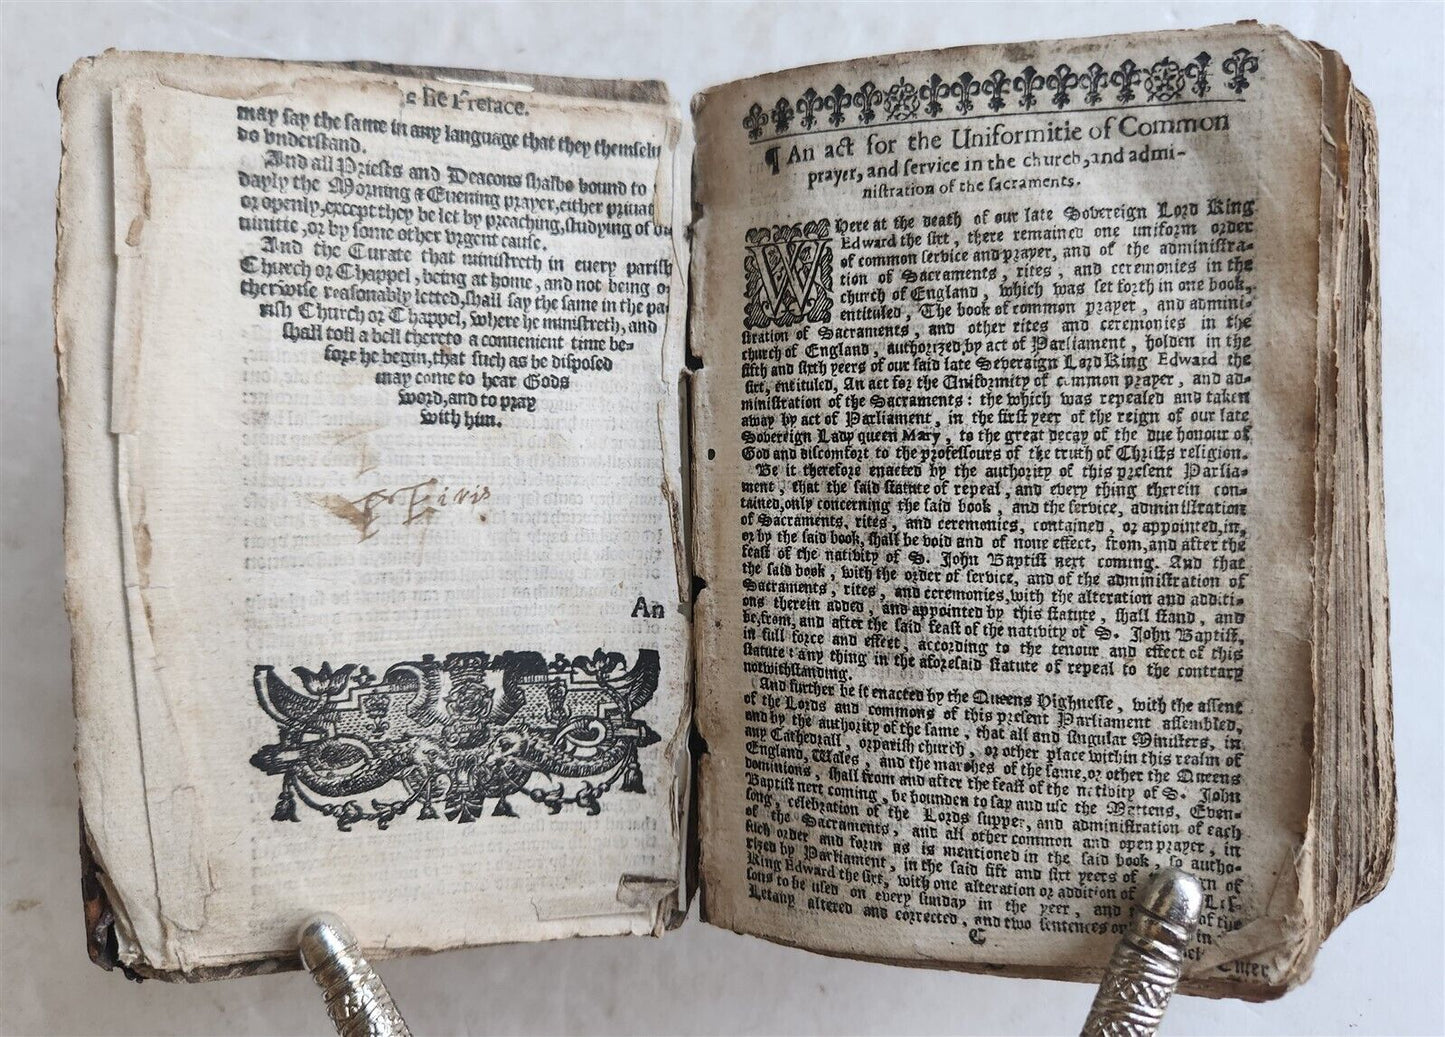 he Preface.
may say the same in any language that they themselu
do vnderstand.
And all Priests and Deacons shalbe bound to
dayly the Morning & Euening prayer, either priuat
or openly, except they be let by preaching, studying of
uinitie, or by some other vrgent cause.
And the Curate that ministreth in euery parish
Church or Chappel, being at home, and not being o
therwise reasonably letted, shall say the same in the pa
rish Church or Chappel, where he ministreth, and
shall toll a bell thereto a conuenient time be-
fore he begin, that such as be disposed
may come to hear Gods
word, and to pray
with him.
An
¶ An act for the Uniformitie of Common
prayer, and service in the church, and admi-
nistration of the sacraments.
WHere at the death of our late Sovereign Lord King
Edward the sixt, there remained one uniform order
of common service and prayer, and of the administra-
tion of Sacraments, rites, and ceremonies in the
church of England, which was set forth in one book,
entituled, The book of common prayer, and admini-
stration of Sacraments, and other rites and ceremonies in the
church of England, authorized by act of Parliament, holden in the
fifth and sixth yeers of our said late Severaign Lord King Edward the
sixt, entituled, An act for the Uniformity of common prayer, and ad-
ministration of the Sacraments: the which was repealed and taken
away by act of Parliament, in the first yeer of the reign of our late
Sovereign Lady queen Mary, to the great decay of the due honour of
God and discomfort to the professours of the truth of Christs religion.
Be it therefore enacted by the authority of this present Parlia-
ment, that the said statute of repeal, and every thing therein con-
tained, only concerning the said book, and the service, administration
of Sacraments, rites, and ceremonies, contained, or appointed, in,
or by the said book, shall be void and of none effect, from, and after the
feast of the nativity of S. John Baptist next coming. And that
the said book, with the order of service, and of the administration of
Sacraments, rites, and ceremonies, with the alteration and additi-
ons therein added, and appointed by this statute, shall stand, and
be, from, and after the said feast of the nativity of S. John Baptist,
in full force and effect, according to the tenour and effect of this
statute: any thing in the aforesaid statute of repeal to the contrary
notwithstanding.
And further be it enacted by the Queens Highnesse, with the assent
of the Lords and commons of this present Parliament assembled,
and by the authority of the same, that all and singular Ministers, in
any Cathedrall, or parish church, or other place within this realm of
England, Wales, and the marches of the same, or other the Queens
dominions, shall from and after the feast of the nativity of S. John
Baptist next coming, be bounden to say and use the Mattens, Even-
song, celebration of the Lords supper, and administration of each
of the Sacraments, and all other common and open prayer, in
such order and form as is mentioned in the said book, so autho-
rized by Parliament, in the said fift and sixt yeers of
King Edward the sixt, with one alteration or addition of
sons to be used on every sunday in the yeer, and of the
Letany altered and corrected, and two sentences
C